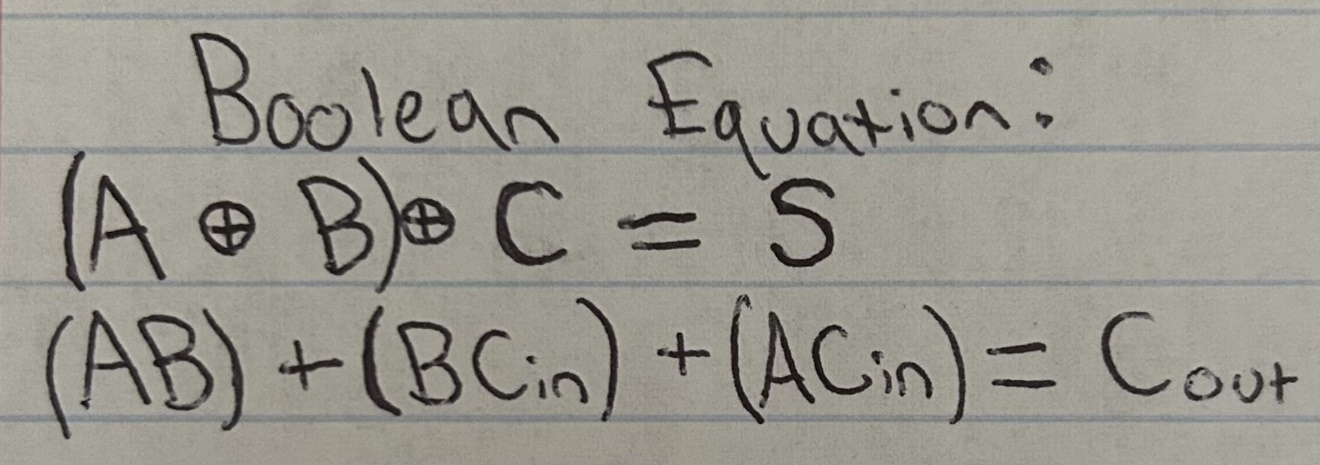 Boolean Equation:
(A ⊕ B)⊕ C = S
(AB) + (BCin) + (ACin) = Cout